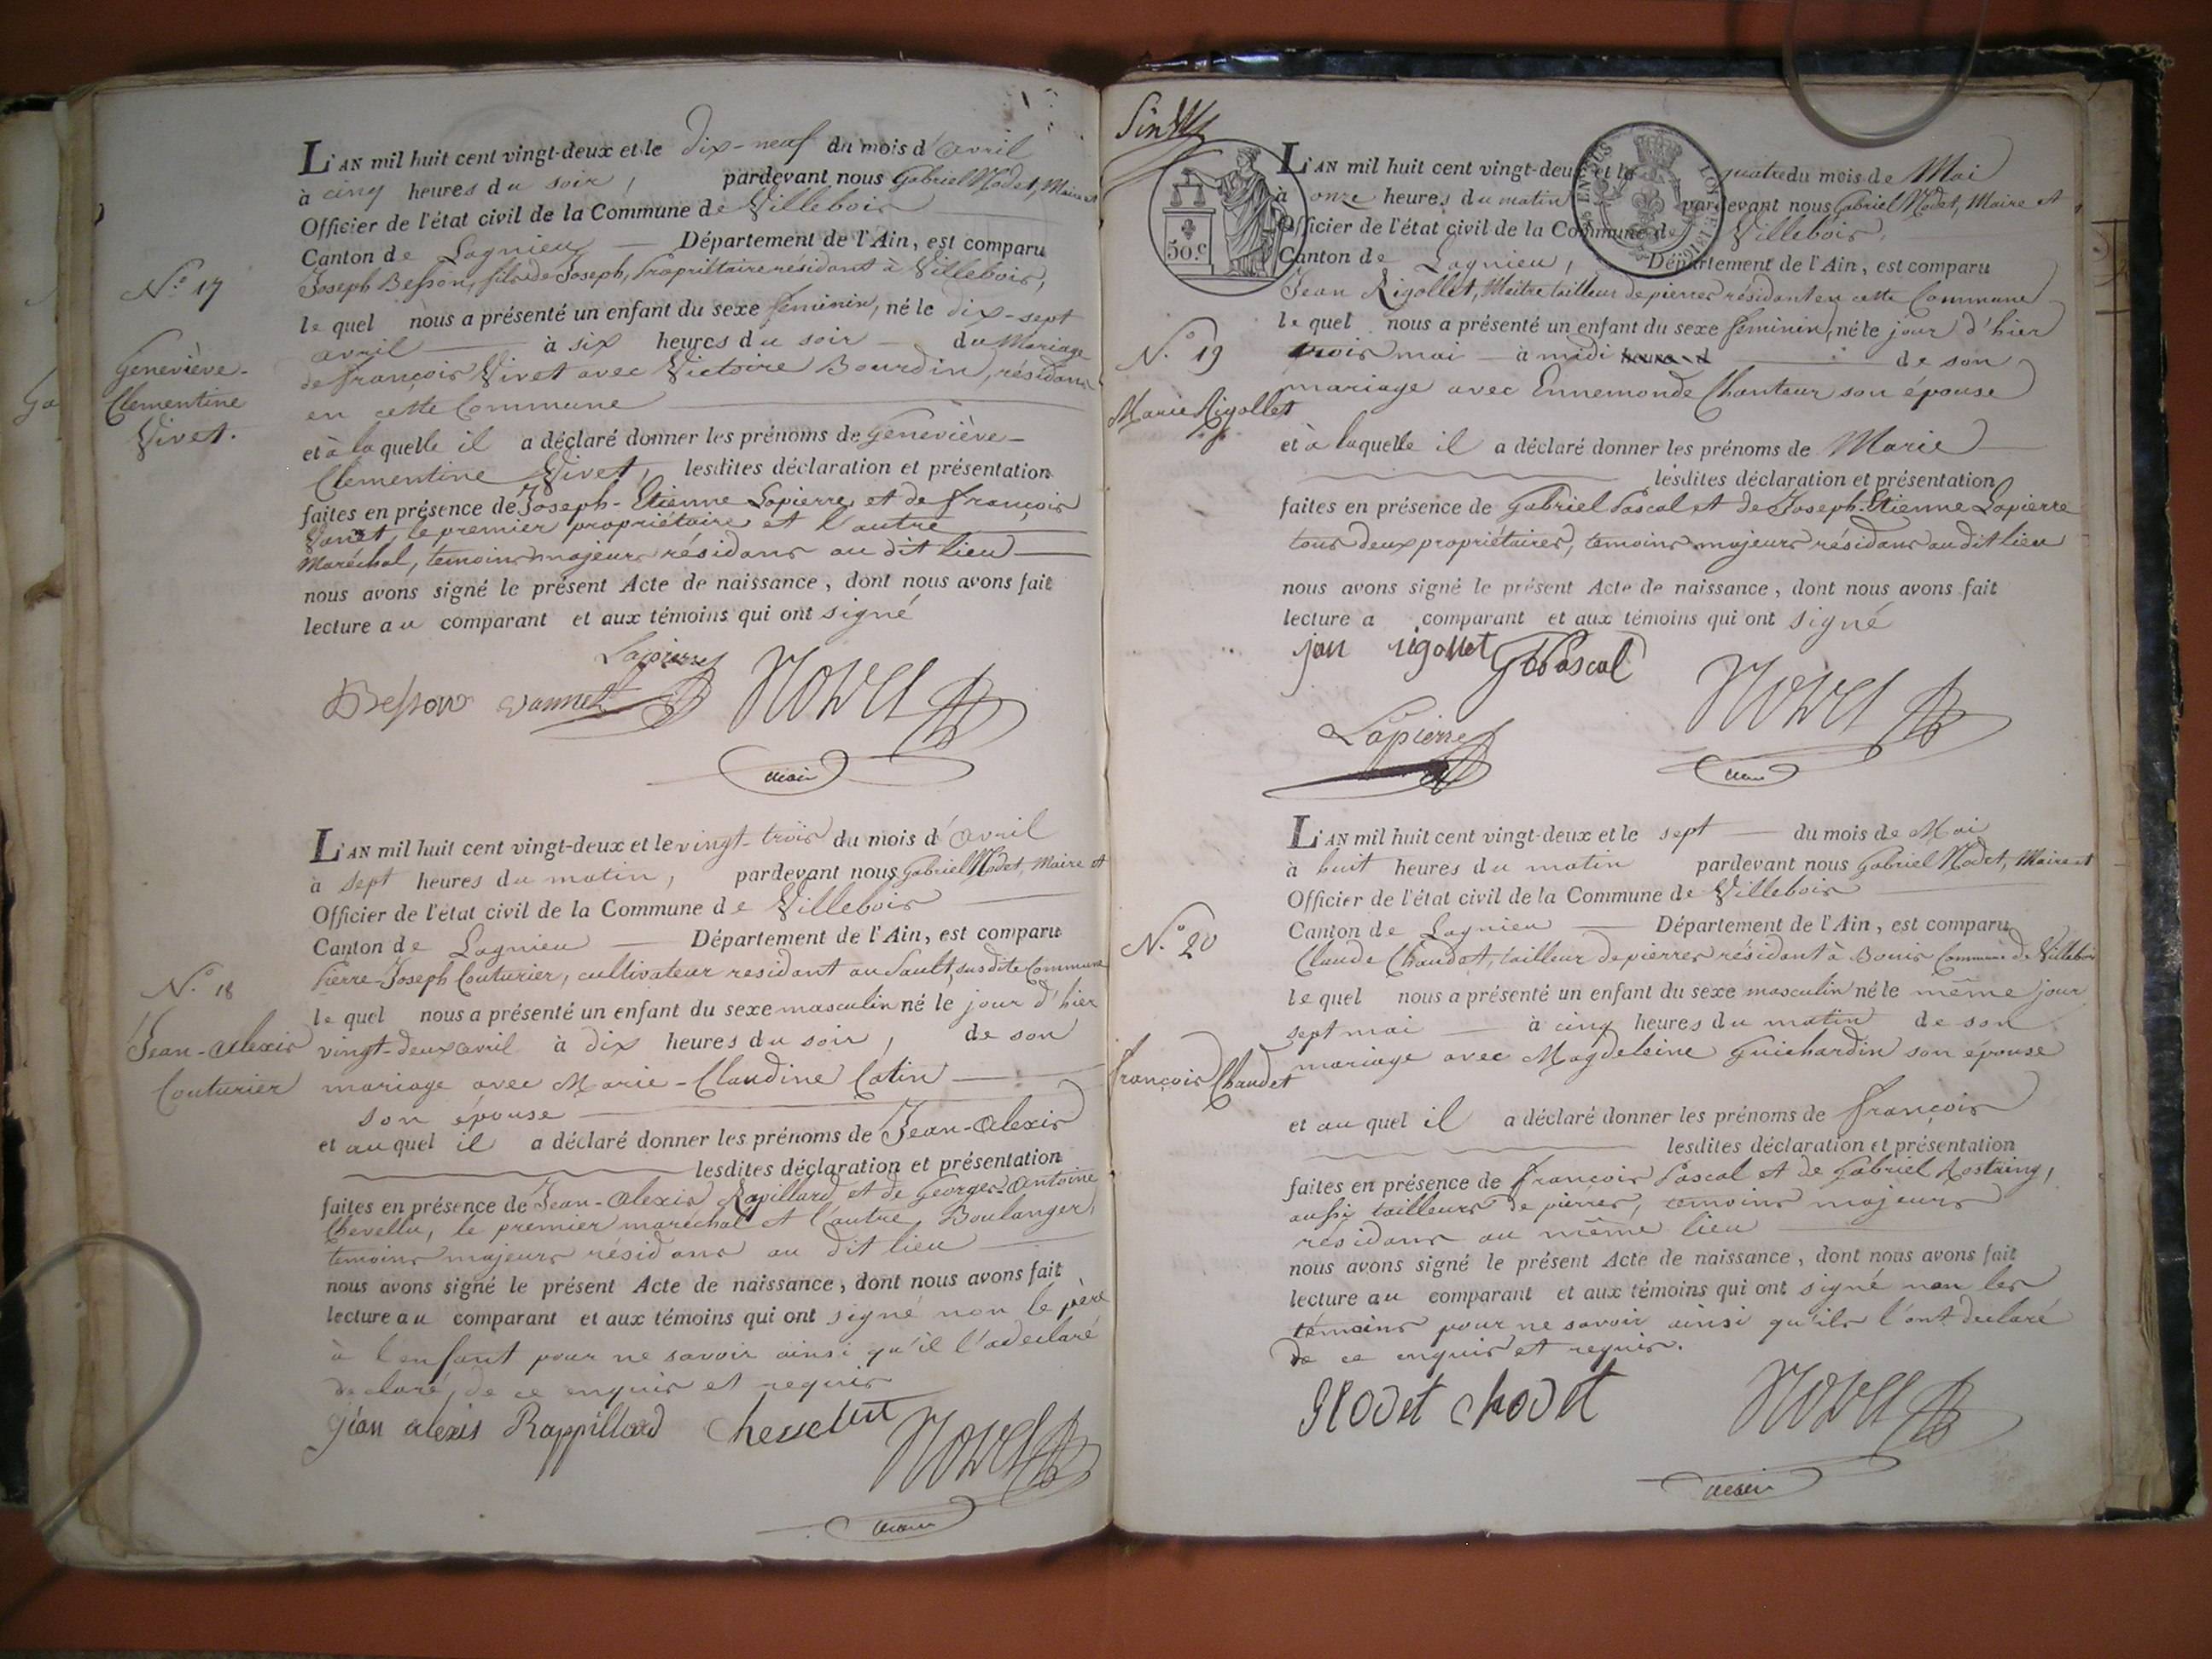 L'AN mil huit cent vingt-deux et le dix-neuf du mois d'avril
à cinq heures du soir, pardevant nous Gabriel Nodet, Maire et
Officier de l'état civil de la Commune de Villebois
Canton de Lagnieu — Département de l'Ain, est comparu
Joseph Besson, fils de Joseph, Propriétaire résidant à Villebois,
N.° 17
le quel nous a présenté un enfant du sexe féminin, né le dix-sept
avril — à six heures du soir — du Mariage
Geneviève-
Clementine
Vivet.
de françois Vivet avec Victoire Bourdin, résidans
en cette Commune
et à laquelle il a déclaré donner les prénoms de Geneviève-
Clementine Vivet, lesdites déclaration et présentation
faites en présence de Joseph-Etienne Lapierre, et de françois
Vanet, le premier propriétaire et l'autre
Maréchal, témoins majeurs résidans au dit lieu
nous avons signé le présent Acte de naissance, dont nous avons fait
lecture au comparant et aux témoins qui ont signé
Lapierre
Besson vannet Nodet
maire
L'AN mil huit cent vingt-deux et le vingt-trois du mois d'avril
à sept heures du matin, pardevant nous Gabriel Nodet, Maire et
Officier de l'état civil de la Commune de Villebois
Canton de Lagnieu — Département de l'Ain, est comparu
Pierre-Joseph Couturier, cultivateur residant au Sault, susdite Commune
N.° 18
le quel nous a présenté un enfant du sexe masculin né le jour d'hier
Jean-Alexis
Couturier
vingt-deux avril à dix heures du soir, de son
mariage avec Marie-Claudine Catin
son épouse
et au quel il a déclaré donner les prénoms de Jean-Alexis
lesdites déclaration et présentation
faites en présence de Jean-Alexis Rapillard et de Georges-Antoine
Chevellu, le premier maréchal et l'autre Boulanger,
temoins majeurs résidans au dit lieu
nous avons signé le présent Acte de naissance, dont nous avons fait
lecture au comparant et aux témoins qui ont signé non le père
à l'enfant pour ne savoir ainsi qu'il l'a declaré
declaré, de ce enquis et requis
jean alexis Rappillard Nodet
maire
50.c
L'AN mil huit cent vingt-deux et le quatre du mois de Mai
à onze heures du matin pardevant nous Gabriel Nodet, Maire et
Officier de l'état civil de la Commune de Villebois,
Canton de Lagnieu, Département de l'Ain, est comparu
Jean Rigollet, Maître tailleur de pierres résidant en cette Commune
le quel nous a présenté un enfant du sexe féminin, né le jour d'hier
N.° 19
trois mai — à midi heures d de son
Marie Rigollet
mariage avec Ennemonde Chanteur son épouse
et à laquelle il a déclaré donner les prénoms de Marie
lesdites déclaration et présentation
faites en présence de Gabriel Pascal et de Joseph-Etienne Lapierre
tous deux propriétaires, temoins majeurs résidans au dit lieu
nous avons signé le présent Acte de naissance, dont nous avons fait
lecture a comparant et aux témoins qui ont signé
jean rigollet G Pascal
Lapierre Nodet
maire
L'AN mil huit cent vingt-deux et le sept — du mois de Mai
à huit heures du matin pardevant nous Gabriel Nodet, Maire et
Officier de l'état civil de la Commune de Villebois
Canton de Lagnieu — Département de l'Ain, est comparu
N.° 20
Claude Chaudet, tailleur de pierres résidant à Bouis Commune de Villebois
le quel nous a présenté un enfant du sexe masculin né le même jour
sept mai — à cinq heures du matin de son
françois Chaudet
mariage avec Magdeleine Guichardin son épouse
et au quel il a déclaré donner les prénoms de françois
lesdites déclaration et présentation
faites en présence de françois Pascal et de Gabriel Rostaing,
aussi tailleurs de pierres, temoins majeurs
résidans au même lieu
nous avons signé le présent Acte de naissance, dont nous avons fait
lecture au comparant et aux témoins qui ont signé non les
témoins pour ne savoir ainsi qu'ils l'ont declaré
de ce enquis et requis.
chodet Nodet
maire